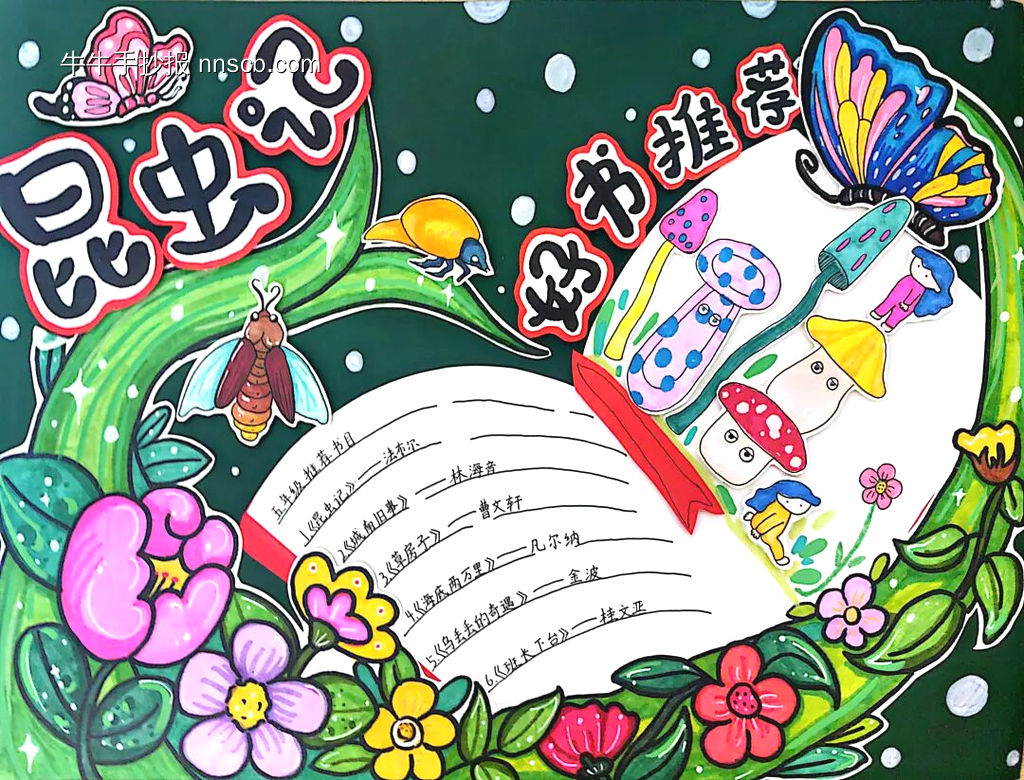 牛牛手抄报 nnscb.com
昆虫记
好书推荐
五年级推荐书目
1.《昆虫记》——法布尔
2.《城南旧事》——林海音
3.《草房子》——曹文轩
4.《海底两万里》——凡尔纳
5.《乌丢丢的奇遇》——金波
6.《班长下台》——桂文亚